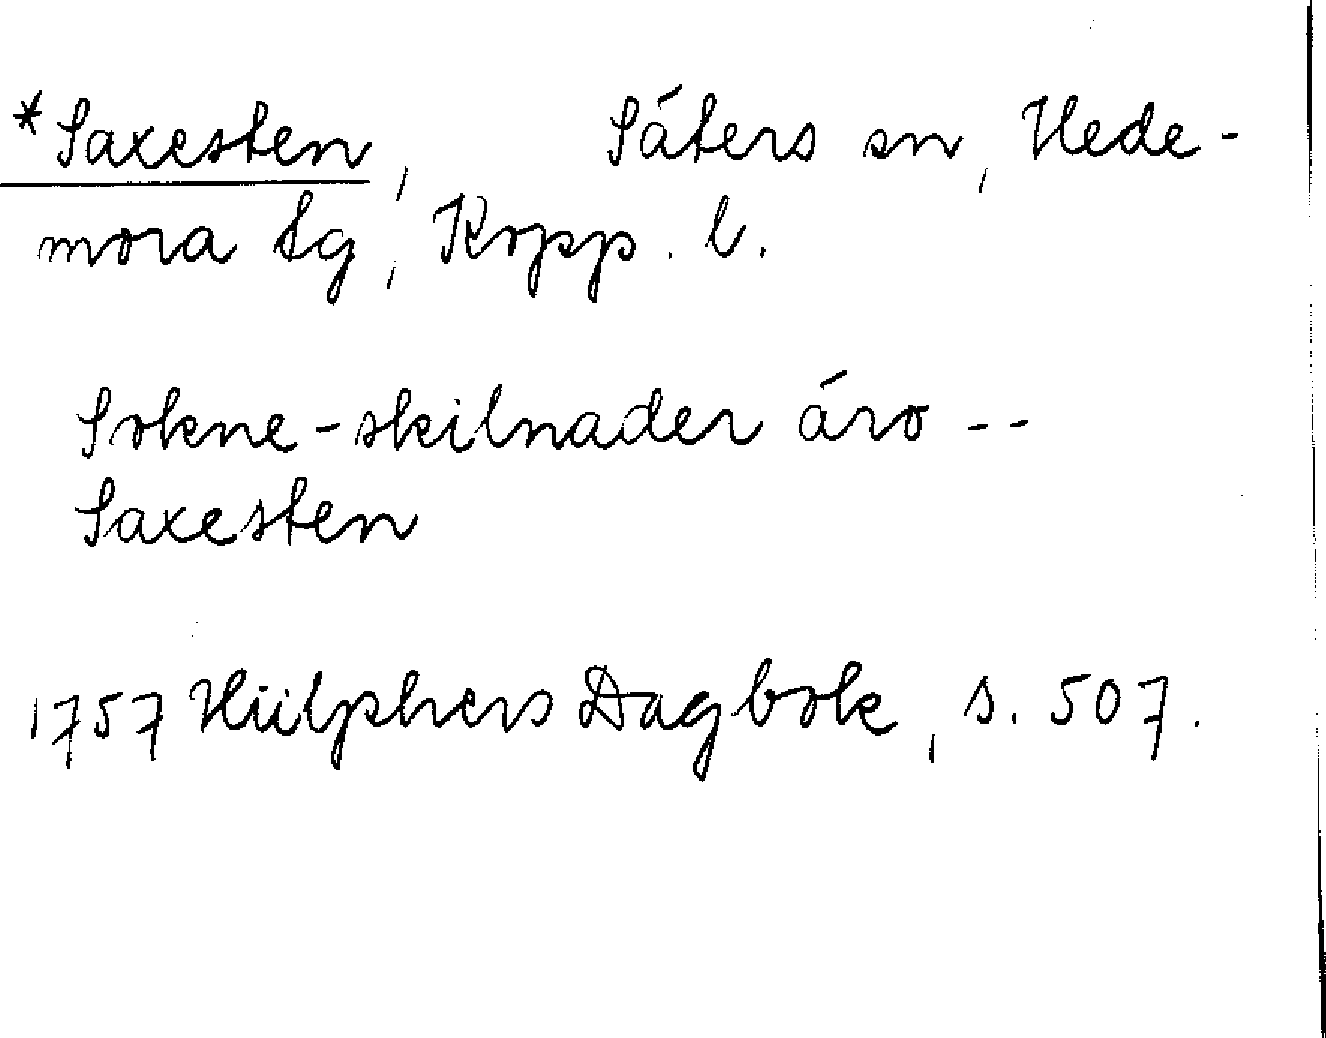 *Saxesten, Säters sn, Hede-
mora tg, Kopp. l.
Sokne-skilnader äro --
Saxesten
1757 Hülphers Dagbok, s. 507.